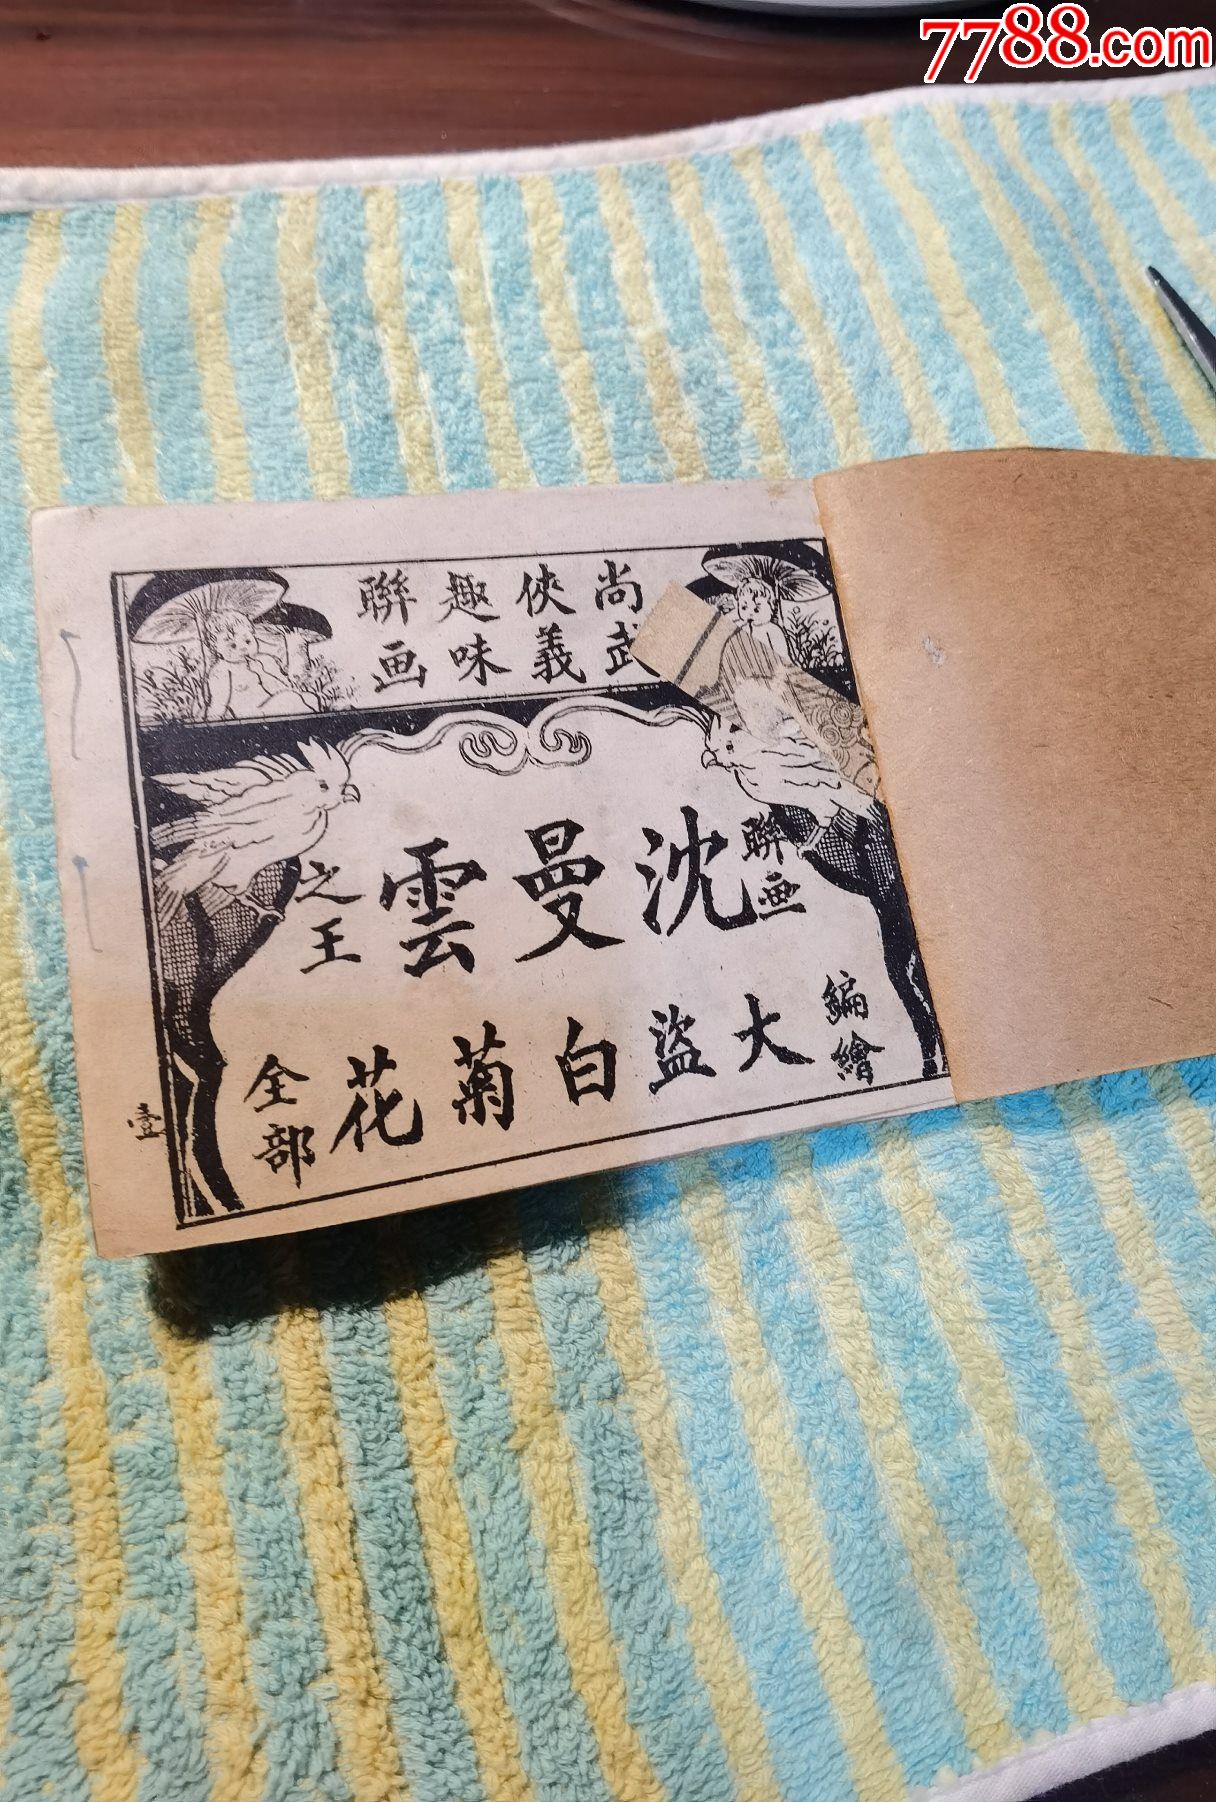 7788.com
尚武 俠義 趣味 聯画
聯画 沈曼雲 之王
編繪
大盜白菊花 全部
壹